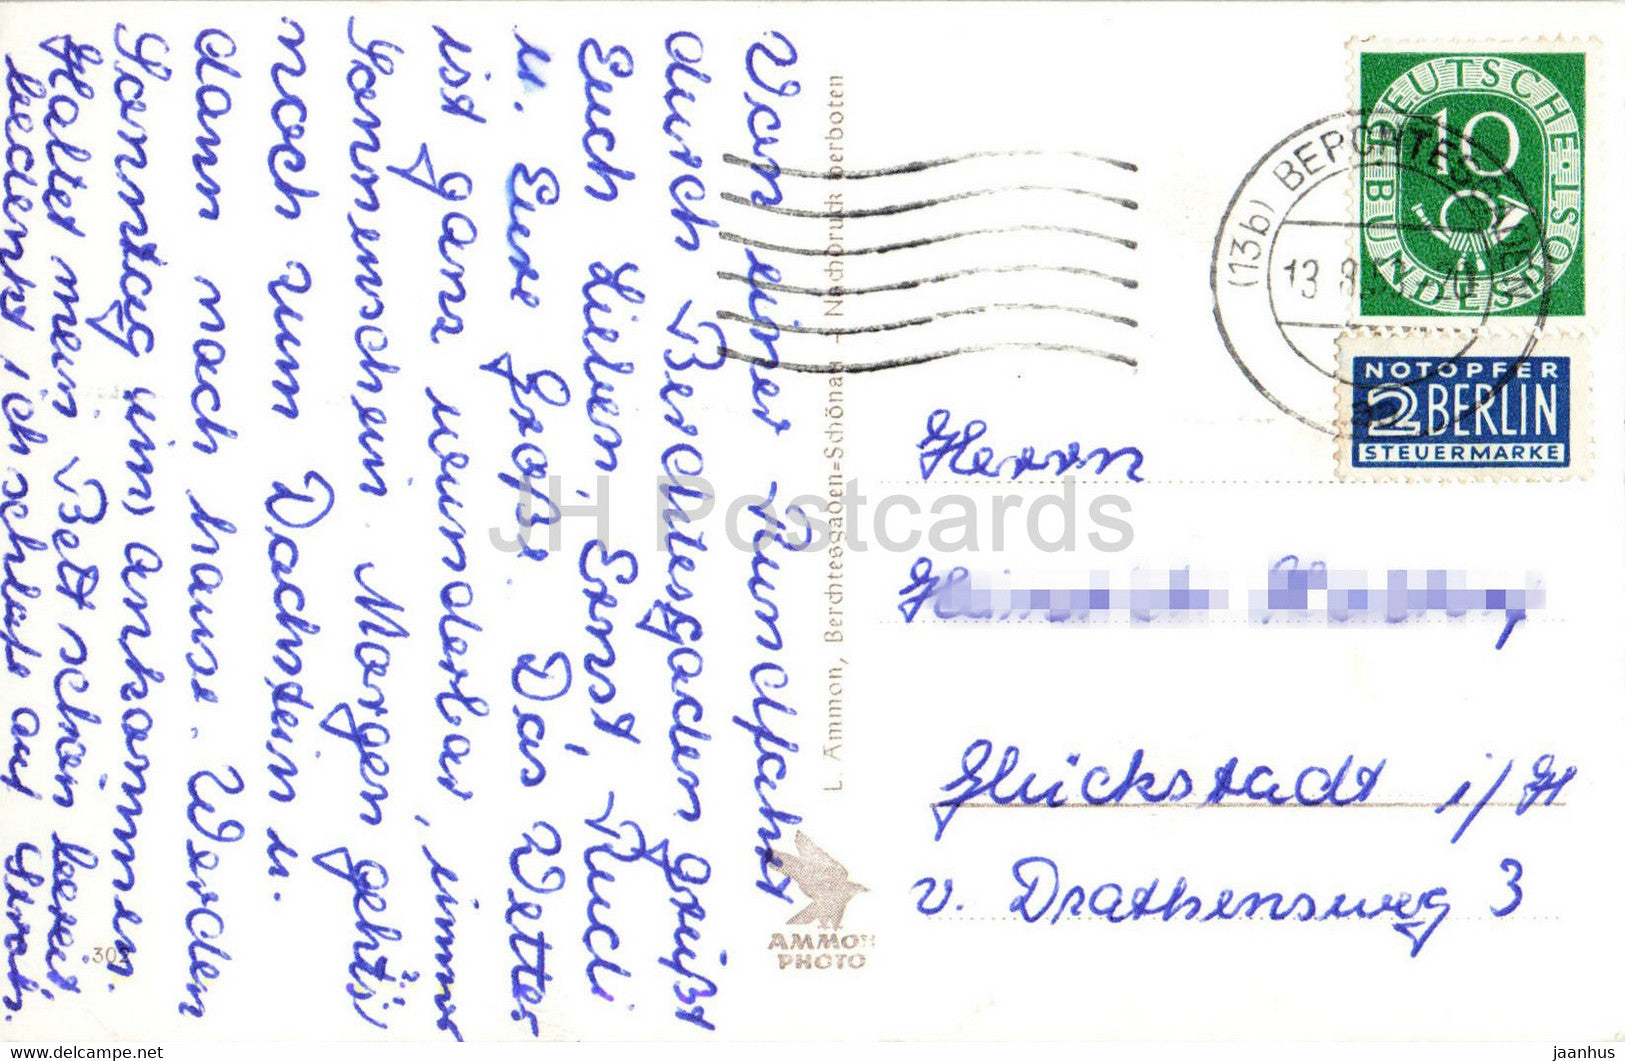 Von einer Rundfahrt
durch Berchtesgaden grüßt
Euch Lieben, Ernst, Rudi
u. Eure Große. Das Wetter
ist ganz wunderbar, immer
Sonnenschein. Morgen geht's
noch zum Dachstein u.
dann nach hause. Werden
Sonntag ankommen.
Haltet mein Bett schön bereit
ich schlafe auf
L. Ammon, Berchtesgaden=Schönau - Nachdruck verboten
AMMON
PHOTO
302
DEUTSCHE BUNDESPOST
10
(13b) BERCHTESGADEN
13.8.
NOTOPFER
2 BERLIN
STEUERMARKE
Herrn
Glückstadt i/H
v. Drathensweg 3
JH Postcards
www.delcampe.net
jaanhus